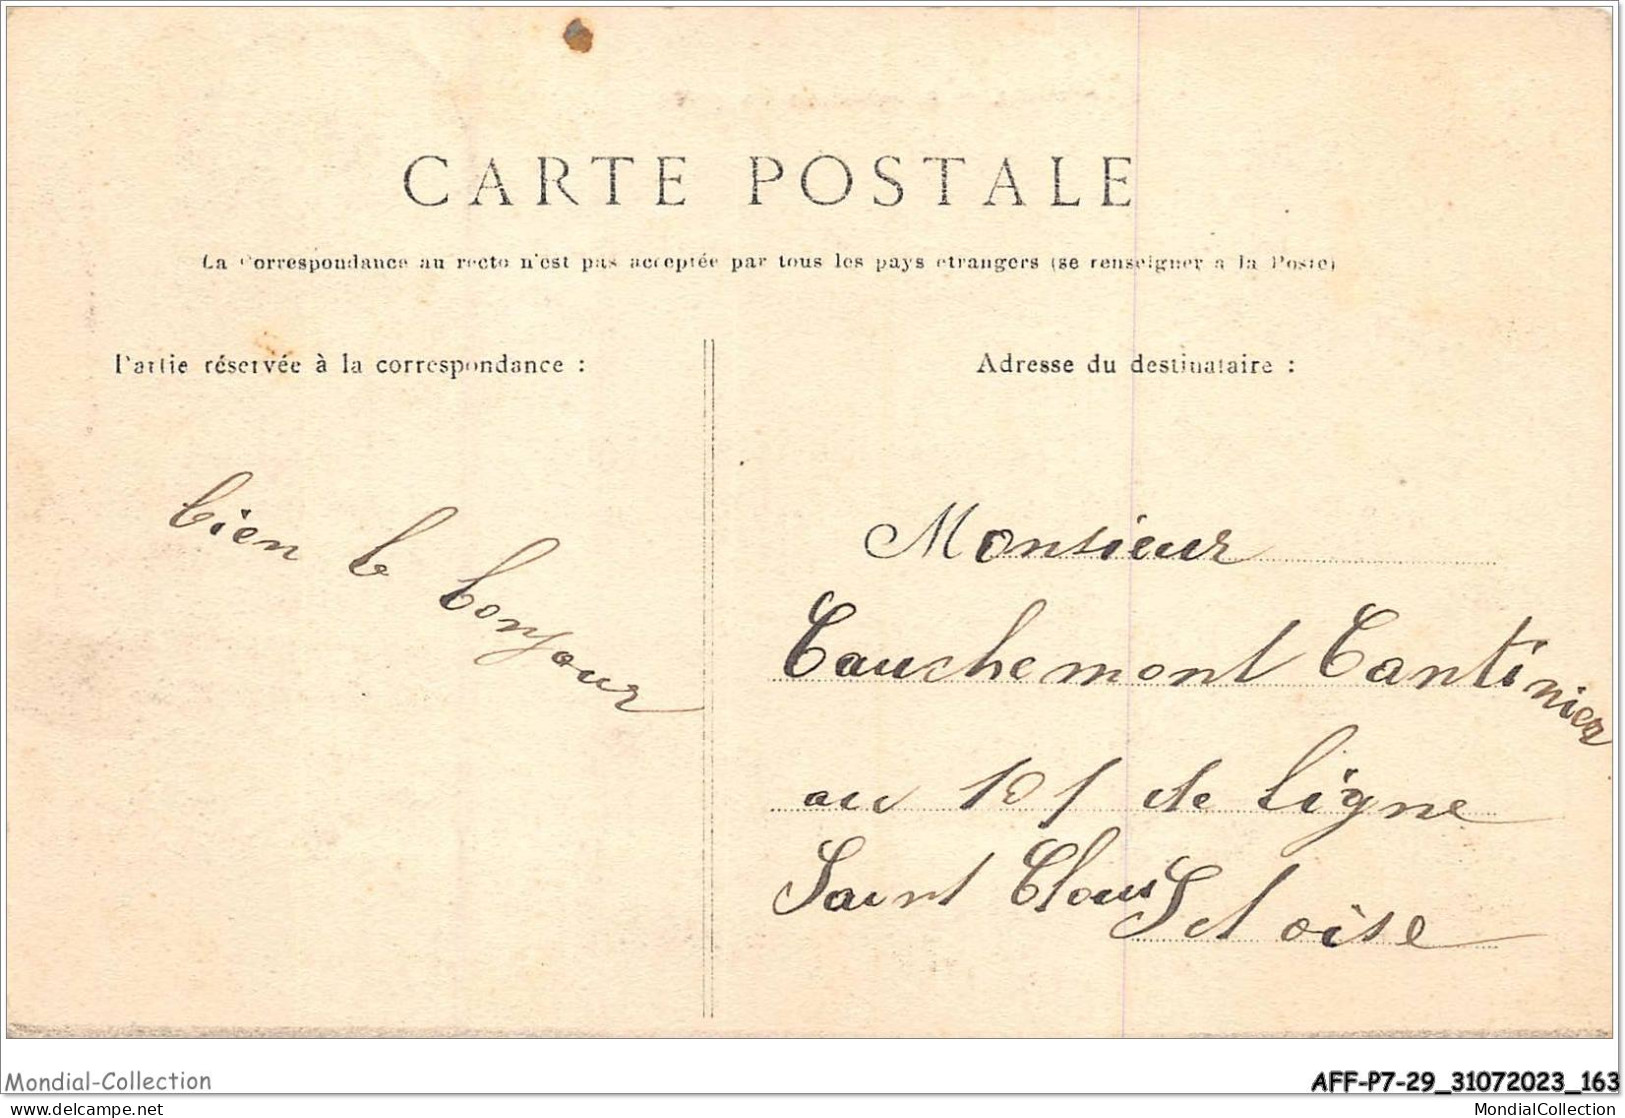 CARTE POSTALE
La Correspondance au recto n'est pas acceptée par tous les pays etrangers (se renseigner a la Poste)
Partie réservée à la correspondance :
Adresse du destinataire :
bien le bonjour
Monsieur
Cauchemont Cantinier
au 101 de ligne
Saint Clous
S et oise
Mondial-Collection
AFF-P7-29_31072023_163
mondial-collection.delcampe.net
MondialCollection